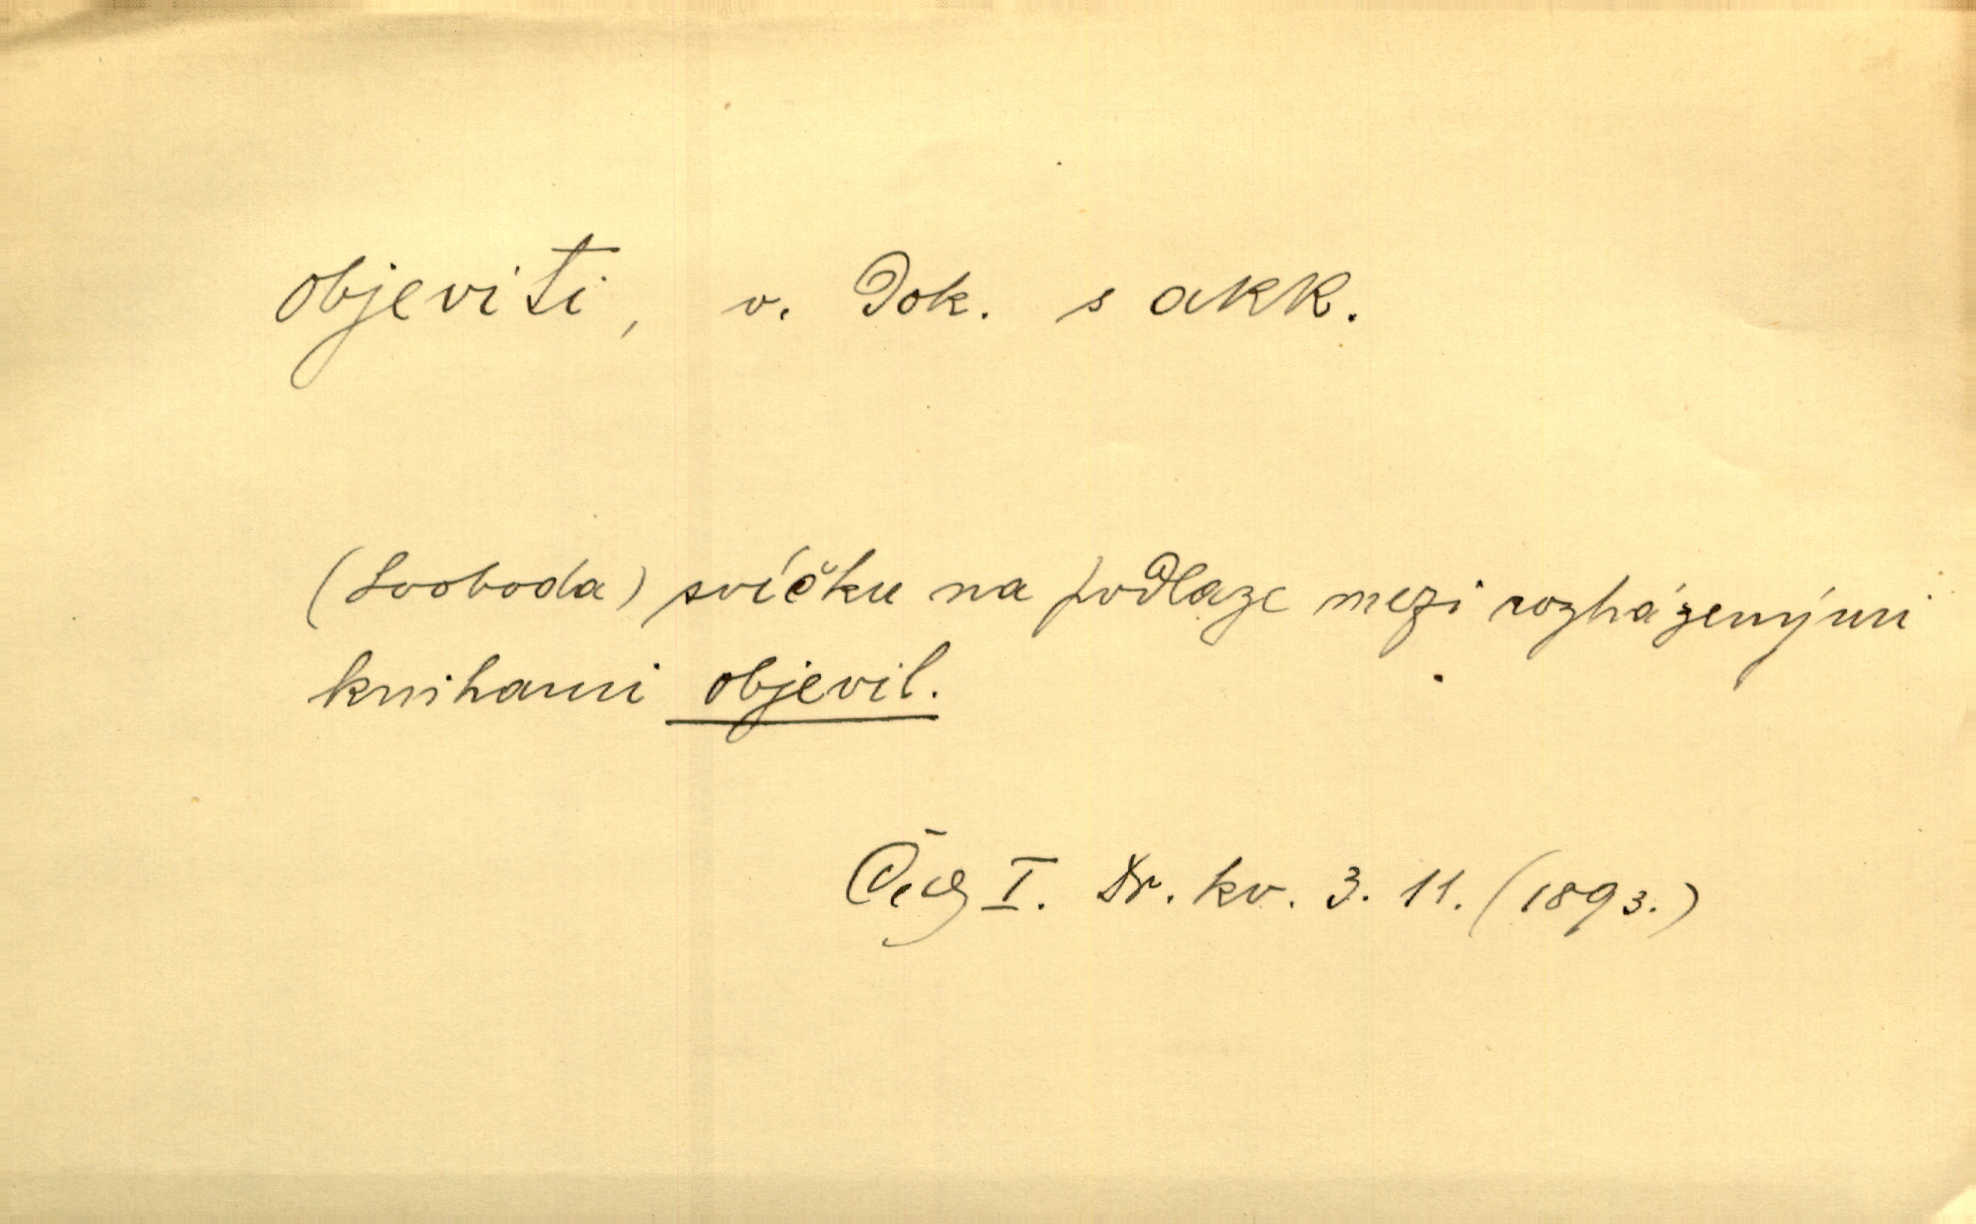 objeviti, v. dok. s akk.
(Svoboda) svíčku na podlaze mezi rozházenými
knihami objevil.
Čech I. Dr. kv. 3. 11. (1893.)